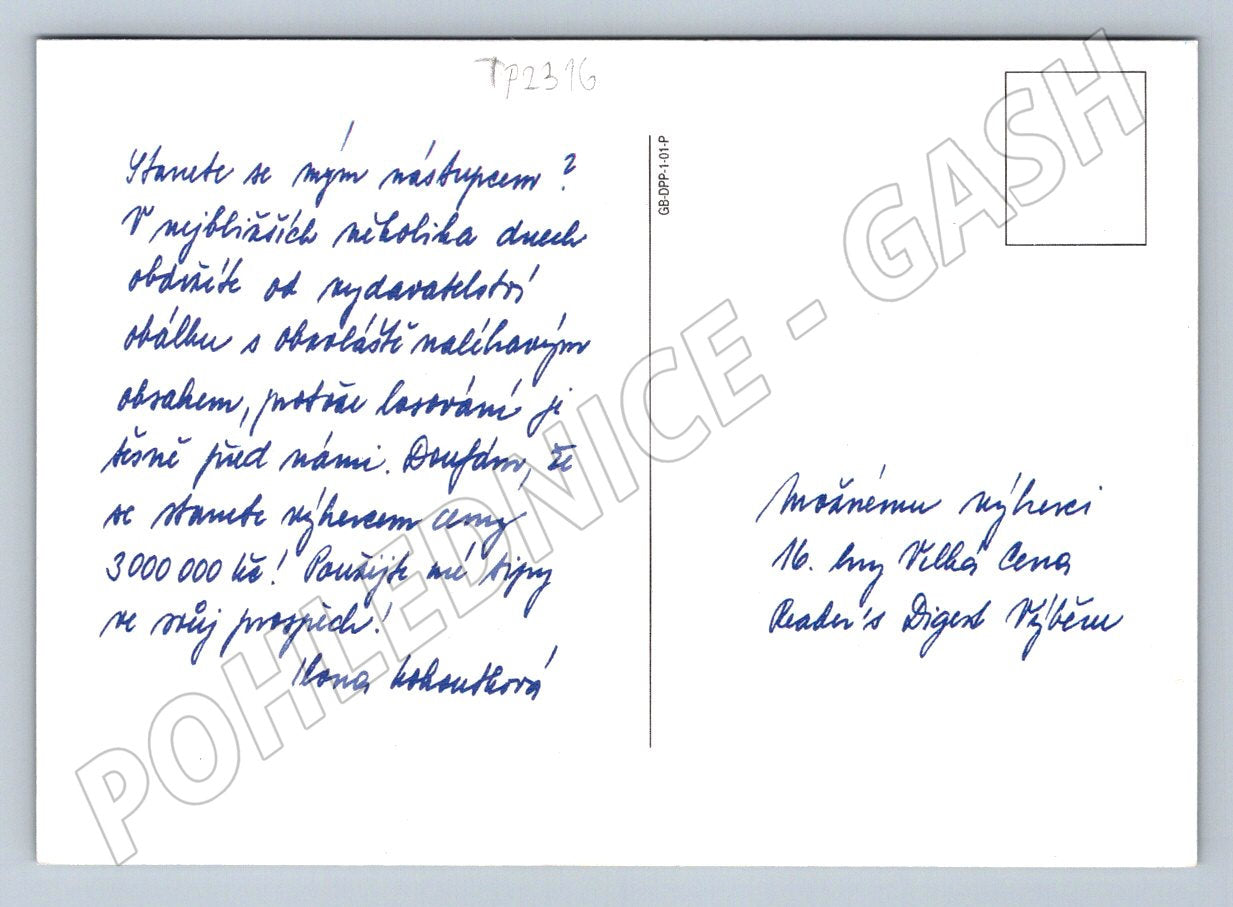 TP2316
Stanete se mým nástupcem?
V nejbližších několika dnech
obdržíte od vydavatelství
obálku s obzvláště naléhavým
obsahem, protože losování je
těsně před námi. Doufám, že
se stanete výhercem ceny
3 000 000 Kč! Použijte mé tipy
ve svůj prospěch!
Ilona Kohoutková
GB-DPP-1-01-P
Možnému výherci
16. hry Velká Cena
Reader's Digest Výběru
POHLEDNICE - GASH